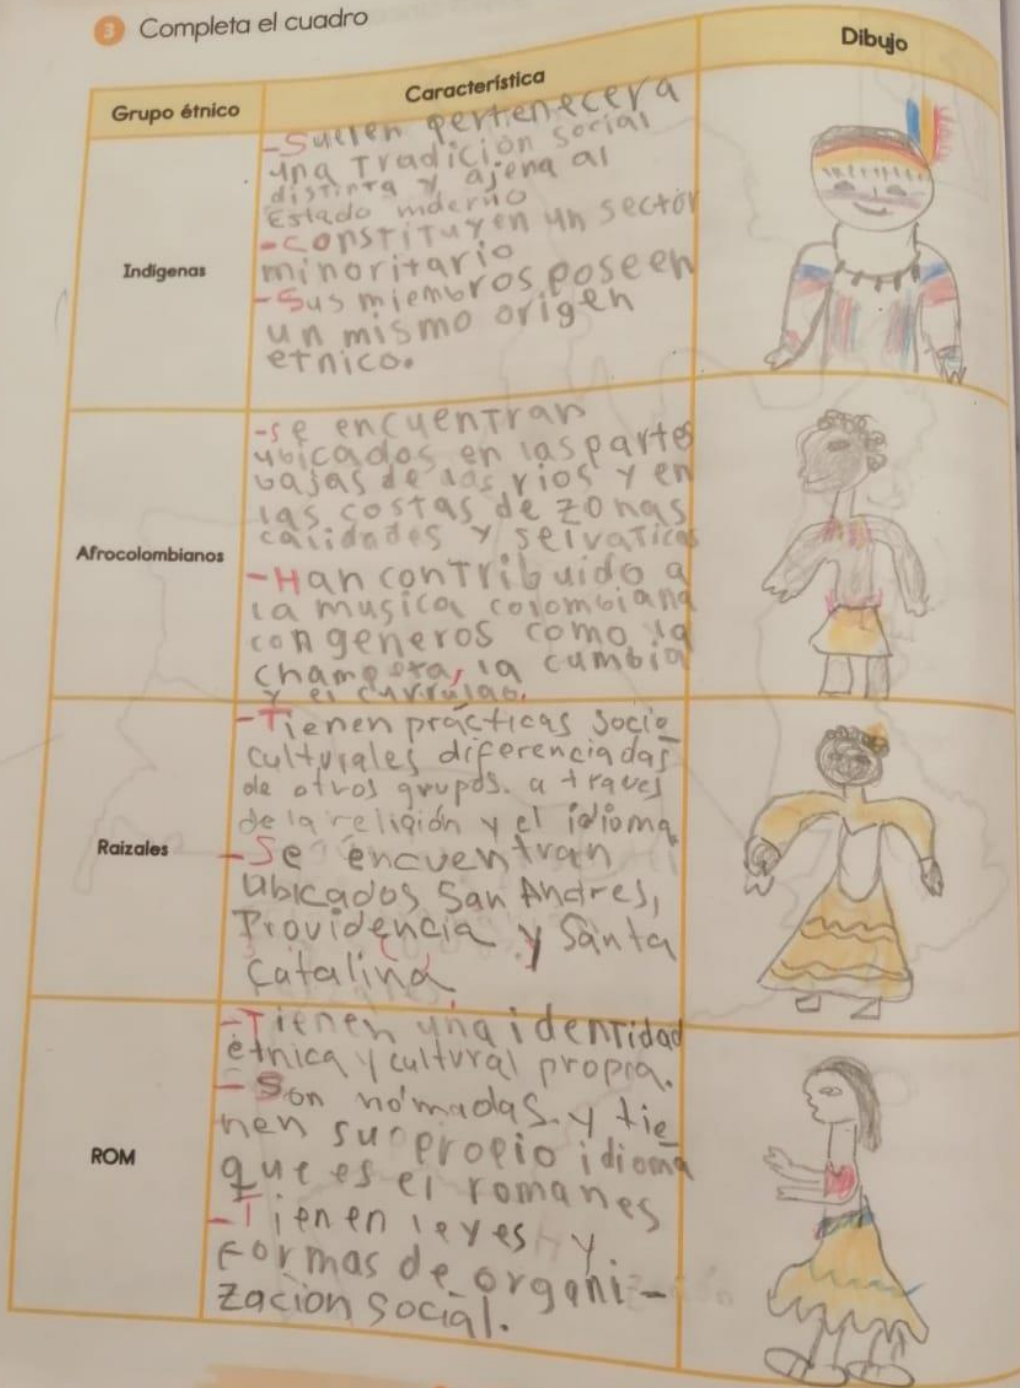 3 Completa el cuadro
Grupo étnico
Característica
Dibujo
Indígenas
-Suelen pertenecer a
una Tradición social
distinta y ajena al
Estado mderno
-constituyen un sector
minoritario
-Sus miembros poseen
un mismo origen
etnico.
Afrocolombianos
-se encuentran
ubicados en las partes
bajas de las rios y en
las costas de zonas
calidades y selvaticas
-Han contribuido a
la musica colombiana
con generos como la
champeta, la cumbia
y el currulao.
Raizales
-Tienen prácticas socio
culturales diferenciadas
de otros grupos. a traves
de la religión y el idioma
-Se encuentran
ubicados San Andres,
Providencia y Santa
Catalina.
ROM
-Tienen una identidad
étnica y cultural propia.
-Son nómadas y tie
nen su propio idioma
que es el romanes
-Tienen leyes y
Formas de organi-
zación social.